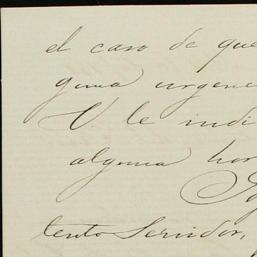 el caso de que
guna urgenc
V. le indi
alguna hor
tento Servidor,